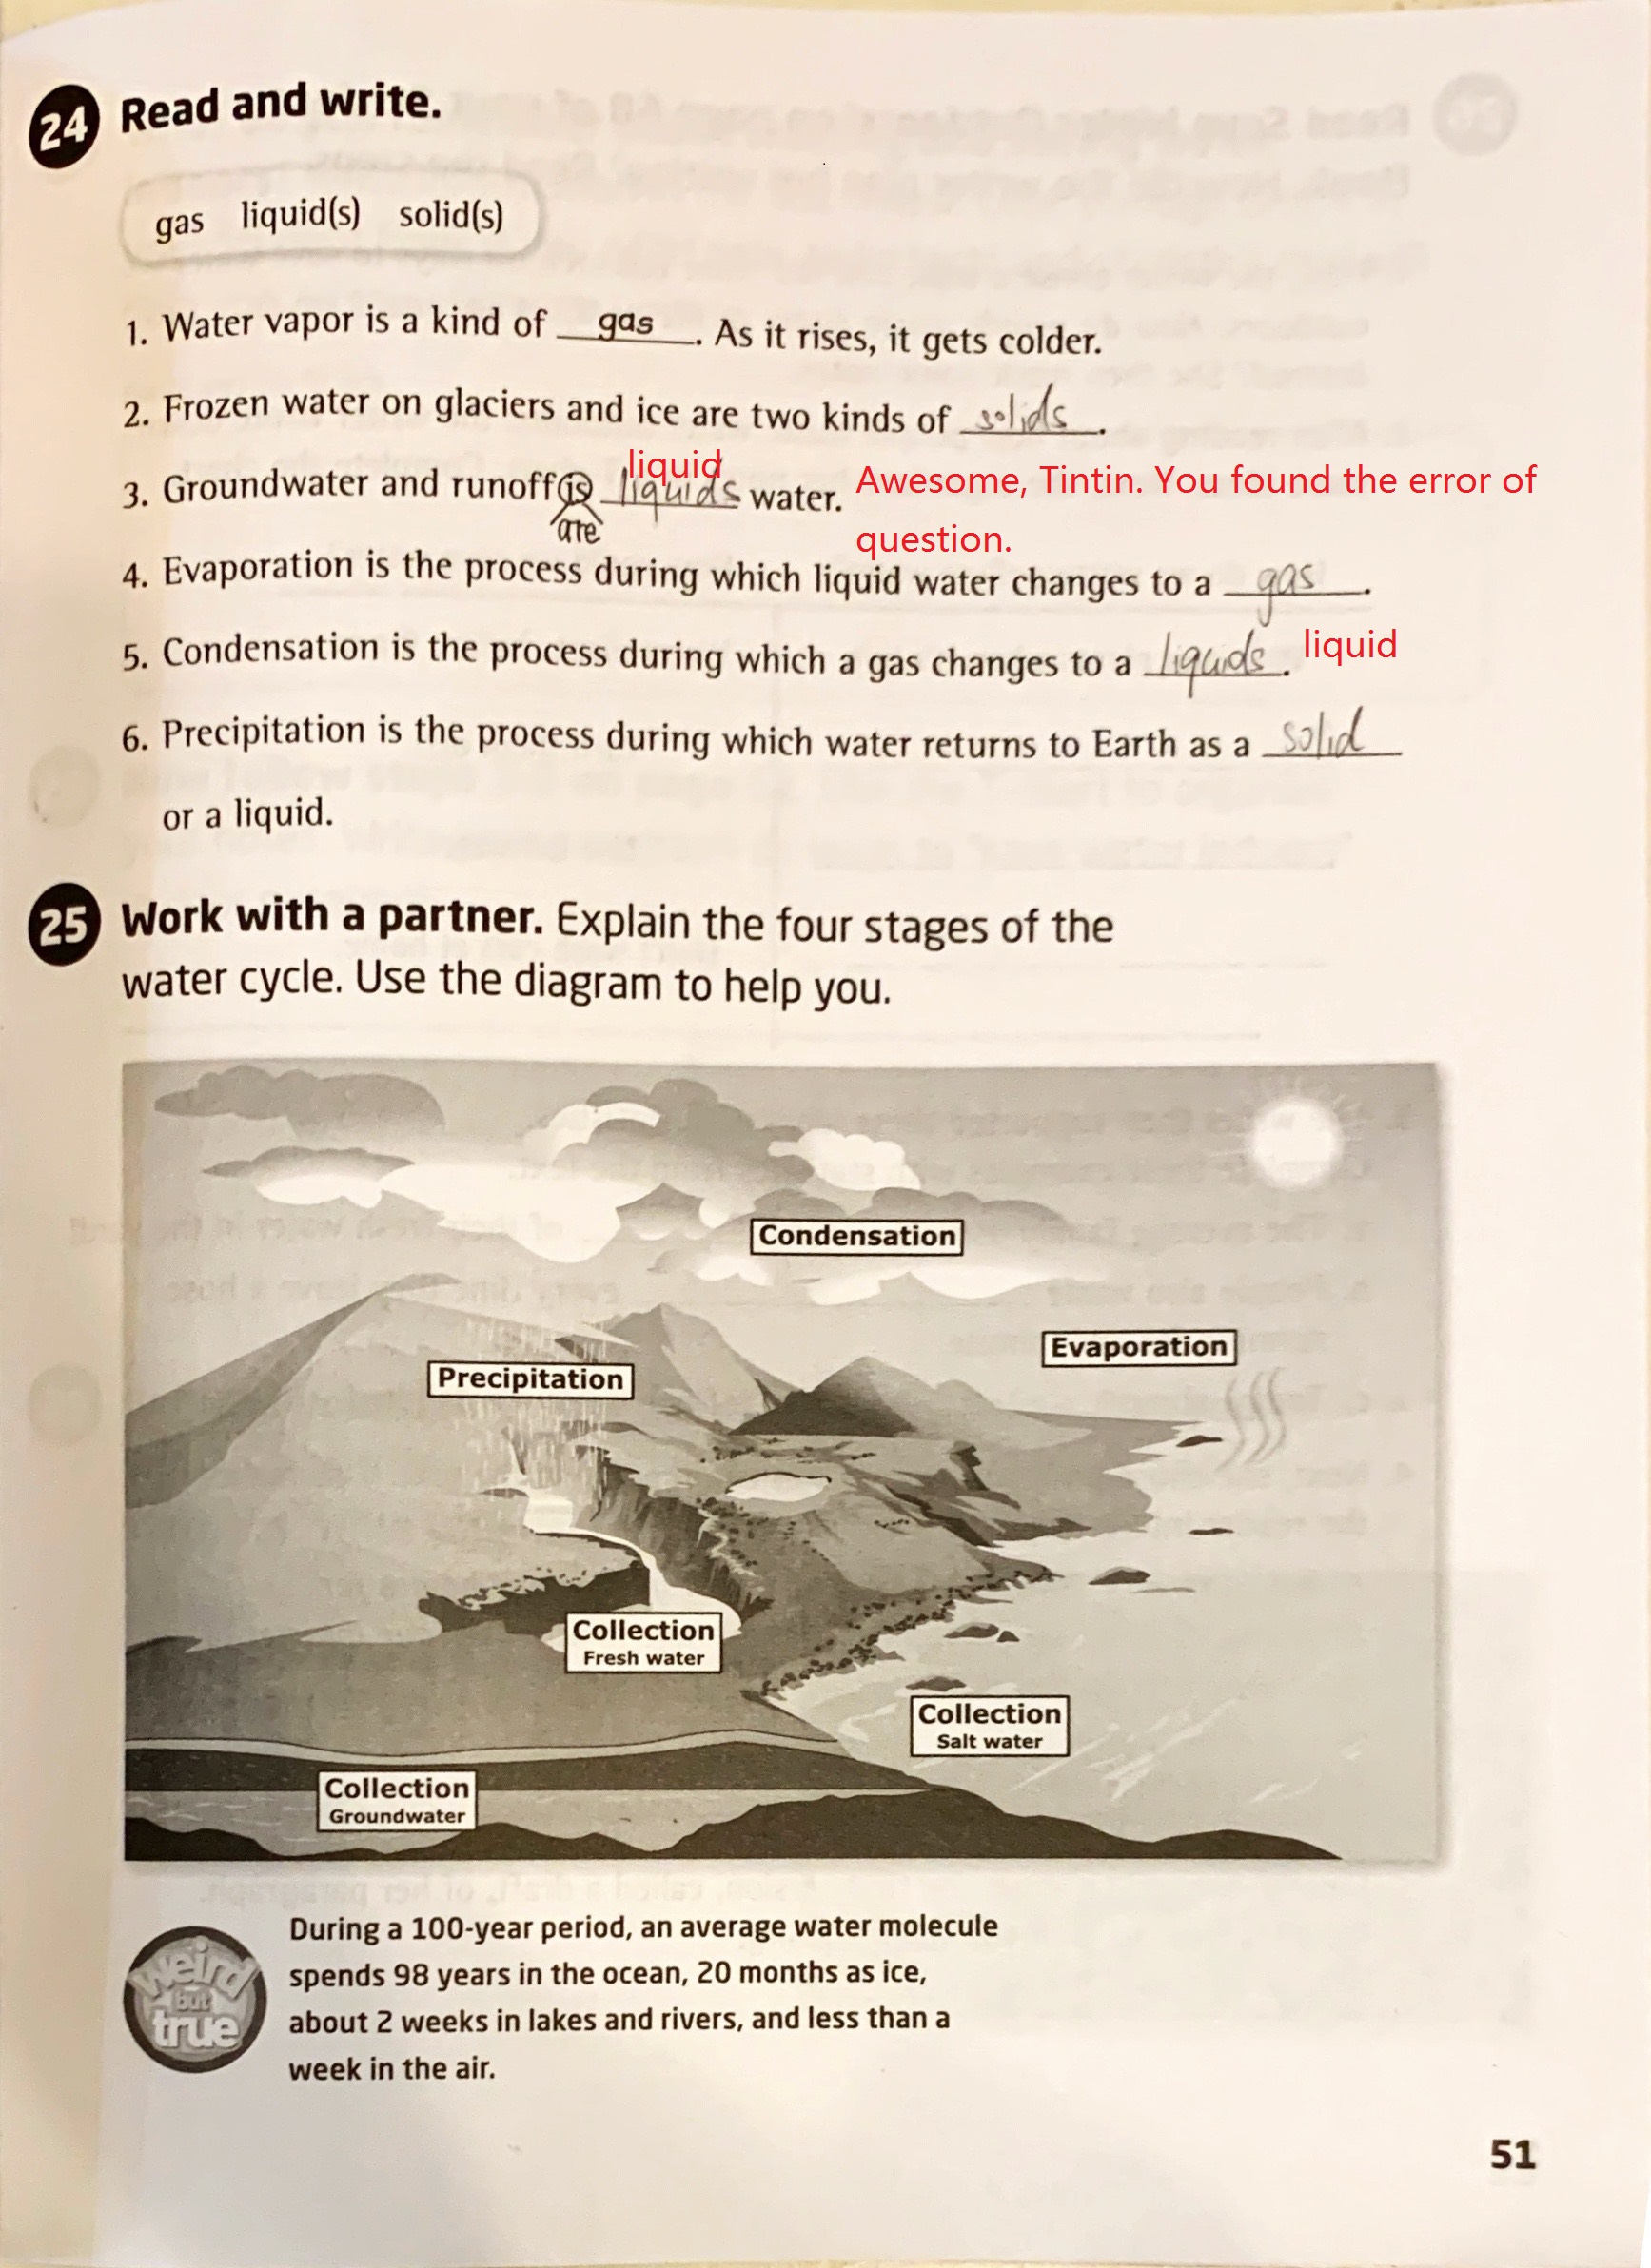 24 Read and write.
gas liquid(s) solid(s)
1. Water vapor is a kind of gas. As it rises, it gets colder.
2. Frozen water on glaciers and ice are two kinds of solids.
liquid
3. Groundwater and runoff is liquids water. Awesome, Tintin. You found the error of
are
question.
4. Evaporation is the process during which liquid water changes to a gas.
5. Condensation is the process during which a gas changes to a liquids. liquid
6. Precipitation is the process during which water returns to Earth as a solid
or a liquid.
25 Work with a partner. Explain the four stages of the
water cycle. Use the diagram to help you.
Condensation
Evaporation
Precipitation
Collection
Fresh water
Collection
Salt water
Collection
Groundwater
weird
but
true
During a 100-year period, an average water molecule
spends 98 years in the ocean, 20 months as ice,
about 2 weeks in lakes and rivers, and less than a
week in the air.
51